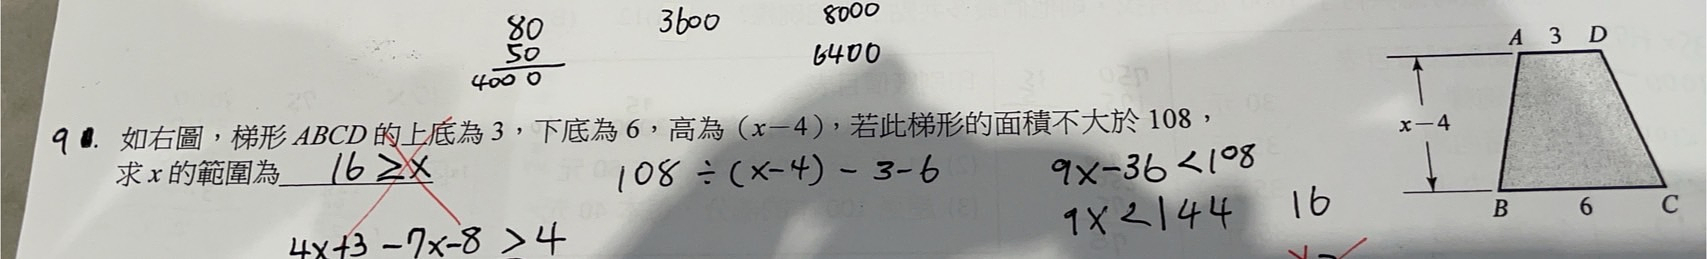 80
50
4000
3600
8000
6400
9. 如右圖，梯形 ABCD 的上底為 3，下底為 6，高為（x－4），若此梯形的面積不大於 108，
求 x 的範圍為 16 ≥ x
108 ÷ (x-4) - 3-6
9x-36 < 108
9x < 144
16
4x+3 -7x-8 > 4
A 3 D
x－4
B 6 C